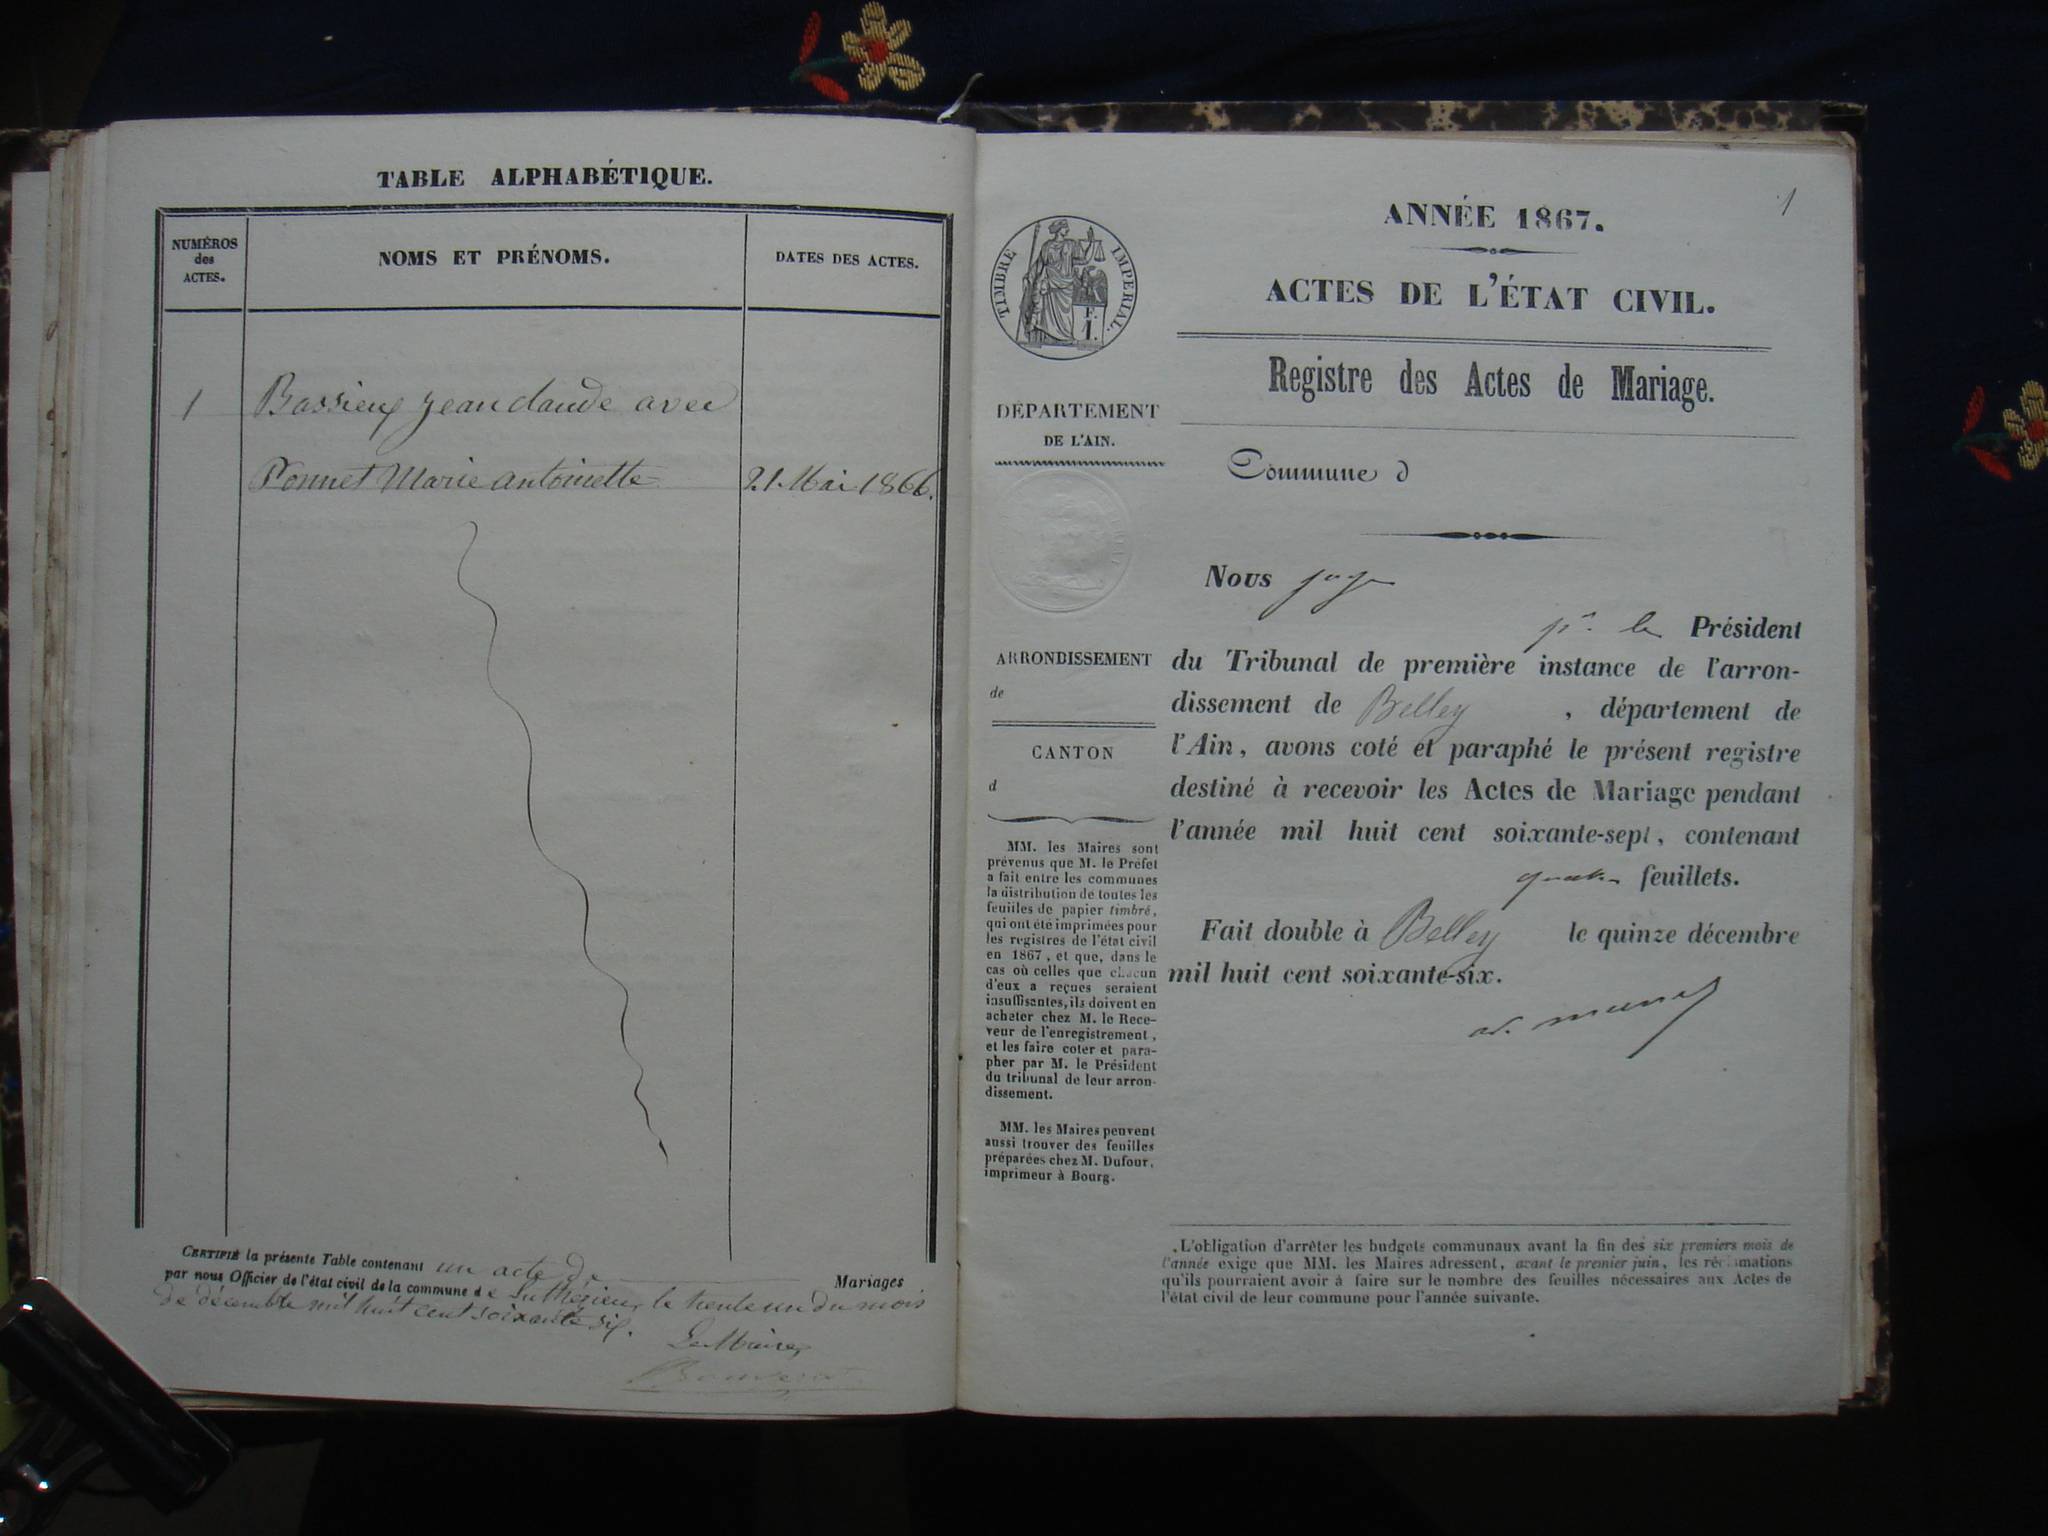 TABLE ALPHABÉTIQUE.
NUMÉROS
des
ACTES.
NOMS ET PRÉNOMS.
DATES DES ACTES.
1
Bassieux jean claude avec
Ponnet Marie antoinette
21 Mai 1866.
CERTIFIÉ la présente Table contenant un acte de Mariages
par nous Officier de l'état civil de la commune de Luthézieu, le trente un du mois
de décembre mil huit cent soixante six.
Le Maire,
1
ANNÉE 1867.
ACTES DE L'ÉTAT CIVIL.
Registre des Actes de Mariage.
Commune d
TIMBRE IMPERIAL.
F.
1.
DÉPARTEMENT
DE L'AIN.
ARRONDISSEMENT
de
CANTON
d
MM. les Maires sont
prévenus que M. le Préfet
a fait entre les communes
la distribution de toutes les
feuilles de papier timbré,
qui ont été imprimées pour
les registres de l'état civil
en 1867, et que, dans le
cas où celles que chacun
d'eux a reçues seraient
insuffisantes, ils doivent en
acheter chez M. le Rece-
veur de l'enregistrement,
et les faire coter et para-
pher par M. le Président
du tribunal de leur arron-
dissement.
MM. les Maires peuvent
aussi trouver des feuilles
préparées chez M. Dufour,
imprimeur à Bourg.
Nous juge
pr. le Président
du Tribunal de première instance de l'arron-
dissement de Belley , département de
l'Ain, avons coté et paraphé le présent registre
destiné à recevoir les Actes de Mariage pendant
l'année mil huit cent soixante-sept, contenant
quatre feuillets.
Fait double à Belley le quinze décembre
mil huit cent soixante-six.
L'obligation d'arrêter les budgets communaux avant la fin des six premiers mois de
l'année exige que MM. les Maires adressent, avant le premier juin, les réclamations
qu'ils pourraient avoir à faire sur le nombre des feuilles nécessaires aux Actes de
l'état civil de leur commune pour l'année suivante.